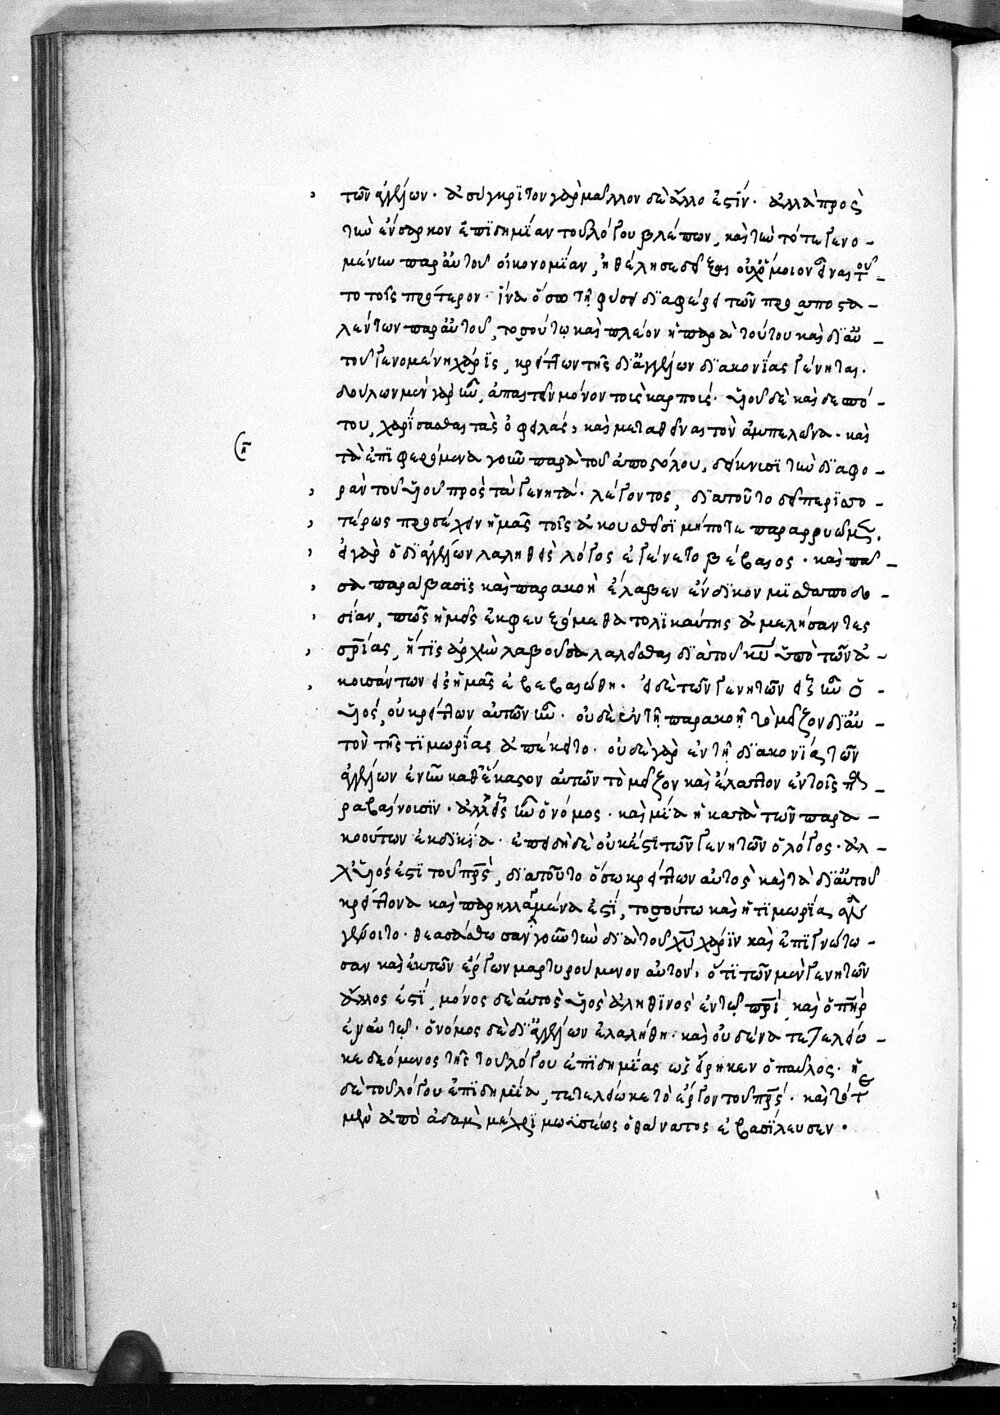 τῶν ἀγγέλων· ἀσύγκριτον γὰρ μᾶλλον δὲ ἄλλο ἐστίν· ἀλλὰ πρὸς
τὴν ἔνσαρκον ἐπιδημίαν τοῦ λόγου βλέπων, καὶ τὴν τότε γενο-
μένην παρ' αὐτοῦ οἰκονομίαν, ἠθέλησε δεῖξαι οὐχ ὅμοιον εἶναι τοῦ-
το τοῖς πρότερον· ἵνα ὅσῳ τῇ φύσει διαφέρει τῶν προαποστα-
λέντων παρ' αὐτοῦ, τοσούτῳ καὶ πλεῖον ἡ παρὰ τούτου καὶ δι' αὐ-
τοῦ γενομένη χάρις, κρείττων τῆς δι' ἀγγέλων διακονίας γένηται.
δούλων μὲν γὰρ ἦν, ἀπαιτεῖν μόνον τοὺς καρπούς· υἱοῦ δὲ καὶ δεσπό-
του, χαρίσασθαι τὰς ὀφειλάς, καὶ μεταθεῖναι τὸν ἀμπελῶνα· καὶ
τὰ ἐπιφερόμενα γοῦν παρὰ τοῦ ἀποστόλου, δείκνυσι τὴν διαφο-
ρὰν τοῦ υἱοῦ πρὸς τὰ γενητά· λέγοντος, διὰ τοῦτο δεῖ περισσο-
τέρως προσέχειν ἡμᾶς τοῖς ἀκουσθεῖσι μήποτε παραρρυῶμεν.
εἰ γὰρ ὁ δι' ἀγγέλων λαληθεὶς λόγος ἐγένετο βέβαιος· καὶ πᾶ-
σα παράβασις καὶ παρακοὴ ἔλαβεν ἔνδικον μισθαποδο-
σίαν, πῶς ἡμεῖς ἐκφευξόμεθα τηλικαύτης ἀμελήσαντες
σωτηρίας, ἥτις ἀρχὴν λαβοῦσα λαλεῖσθαι διὰ τοῦ κυ ὑπὸ τῶν ἀ-
κουσάντων εἰς ἡμᾶς ἐβεβαιώθη· εἰ δὲ τῶν γενητῶν εἷς ἦν ὁ
υἱός, οὐ κρείττων αὐτῶν ἦν· οὐδὲ ἐν τῇ παρακοῇ τὸ μεῖζον δι' αὐ-
τὸν τῆς τιμωρίας ἀπέκειτο· οὐδὲ γὰρ ἐν τῇ διακονίᾳ τῶν
ἀγγέλων ἐνῆν καθ' ἕκαστον αὐτῶν τὸ μεῖζον καὶ ἔλαττον ἐν τοῖς πα-
ραβαίνουσιν· ἀλλ' εἷς ἦν ὁ νόμος· καὶ μία ἡ κατὰ τῶν παρα-
κουόντων ἐκδικία· ἐπειδὴ δὲ οὐκ ἔστι τῶν γενητῶν ὁ λόγος· ἀλ-
λ' υἱός ἐστι τοῦ πρς, διὰ τοῦτο ὅσῳ κρείττων αὐτὸς καὶ τὰ δι' αὐτοῦ
κρείττονα καὶ παρηλλαγμένα ἐστί, τοσούτῳ καὶ ἡ τιμωρία χείρων
γένοιτο· θεασάσθωσαν γοῦν τὴν διὰ τοῦ χυ χάριν καὶ ἐπιγνώτω-
σαν καὶ ἐκ τῶν ἔργων μαρτυρούμενον αὐτόν, ὅτι τῶν μὲν γενητῶν
ἄλλος ἐστί, μόνος δὲ αὐτὸς υἱὸς ἀληθινὸς ἐν τῷ πρι, καὶ ὁ πηρ
ἐν αὐτῷ· ὁ νόμος δὲ δι' ἀγγέλων ἐλαλήθη· καὶ οὐδένα τετελείω-
κε δεόμενος τῆς τοῦ λόγου ἐπιδημίας ὡς εἴρηκεν ὁ παῦλος· ἡ
δὲ τοῦ λόγου ἐπιδημία, τετελείωκε τὸ ἔργον τοῦ πρς· καὶ τότε
μὲν ἀπὸ ἀδὰμ μέχρι μωϋσέως ὁ θάνατος ἐβασίλευσεν·